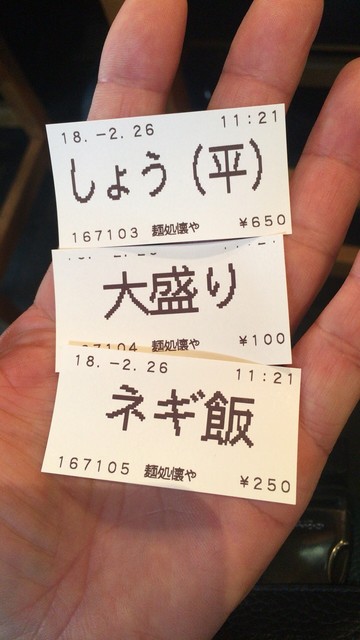 18.-2.26 11:21
しょう(平)
167103 麺処懐や ¥650
大盛り
167104 麺処懐や ¥100
18.-2.26 11:21
ネギ飯
167105 麺処懐や ¥250